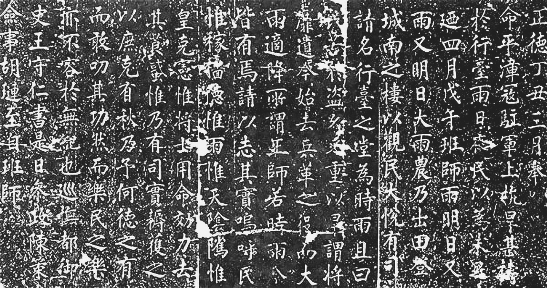 正德丁丑三月奉
命平漳寇駐軍上杭旱甚禱
於行臺雨日夜民以為未足
廼四月戊午班師雨明日又
雨又明日大雨農乃出田登
城南之樓以觀民大悅有司
請名行臺之堂為時雨且曰
盜久又重以旱謂將
靡遺今始去兵革之役而大
雨適降所謂王師若時雨今
皆有焉請以志其實嗚呼民
惟稼穡德惟雨惟天陰騭惟
皇克憲惟將士用命効力去
其莨蜮惟乃有司實耨獲之
以庶克有秋乃予何德之有
而敢叨其功然而樂民之樂
亦不容於無紀也巡撫都御
史王守仁書是日參政陳策
僉事胡璉至自班師